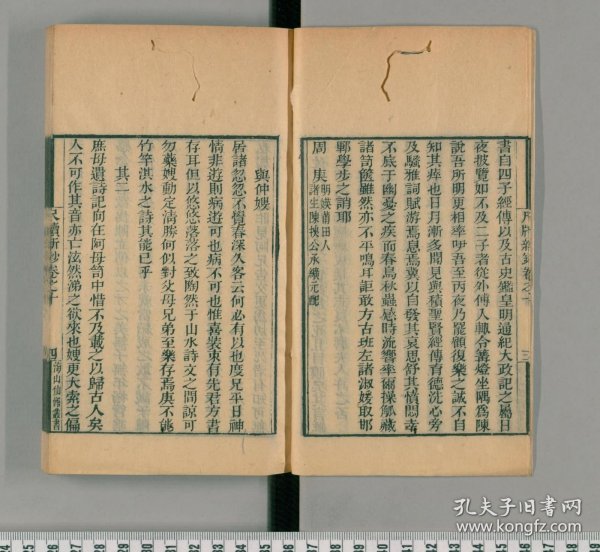 書自四子經傳以及古史鑑皇明通紀大政記之屬日
夜披覽如不及二子者從外傅入輒合篝燈坐隅爲陳
說吾所明更相率吚吾至丙夜乃罷顧復樂之誠不自
知其瘁也日月漸多聞見與積聖賢經傳育德洗心旁
及騷雅詞賦游焉息焉冀以自發其哀思舒其憤悶幸
不底于幽憂之疾而春鳥秋蟲感時流響率爾操觚藏
諸笥篋雖然亦不平鳴耳詎敢方古班左諸淑媛取邯
鄲學步之誚耶
周庚 明媖莆田人
諸生陳挨公承纊元配
與仲嫂
居諸忽忽不覺春深久客云何必有以也度兄平日神
情非遊則病遊可也病不可也惟喜裝束有先君方書
存耳但以悠悠落落之致陶然于山水詩文之間諒可
勿藥嫂動定淸勝何似對父母兄弟至樂存焉庚不能
竹竿淇水之詩其能已乎
其二
庶母遺詩記向在阿母笥中惜不及載之以歸古人矣
人不可作其音亦亡泫然涕之欲來也嫂更大索之偏
尺牘新鈔卷之十
三
尺牘新鈔卷之十
四
海山仙館叢書
孔夫子旧书网
www.kongfz.com